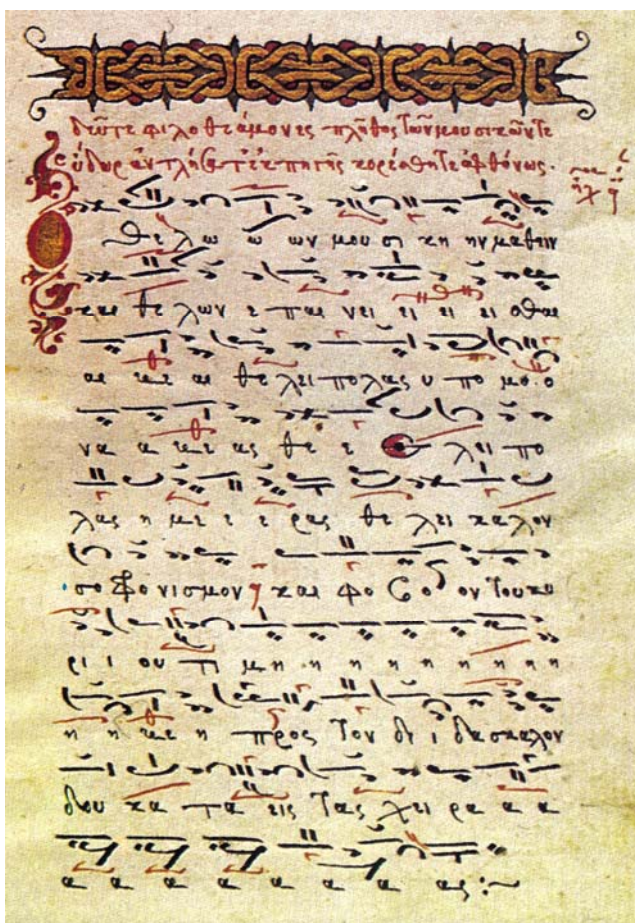 δεῦτε φιλοθεάμονες πλῆθος τῶν μουσικῶν τε
ὕδωρ ἀντλήσατε ἐκ πηγῆς κορέσθητε ἀφθόνως.
ἦχος
Θε λω ω ων μου σι κη ην μαθειν
και θε λων ε παι νει ει ει ει σθαι
αι αι θε λει πολας υ πο μο ο
να α ας θε ε λει πο
λας η με ε ε ρας θε λει καλον
σο φο νι σμον και φο βο ον του κυ
ρι ι ου τι μη η η η η η η
η η η προς τον δι ι δα σκαλον
δου κα τα εις τας χει ρα α α
α α α α α α α ας :~